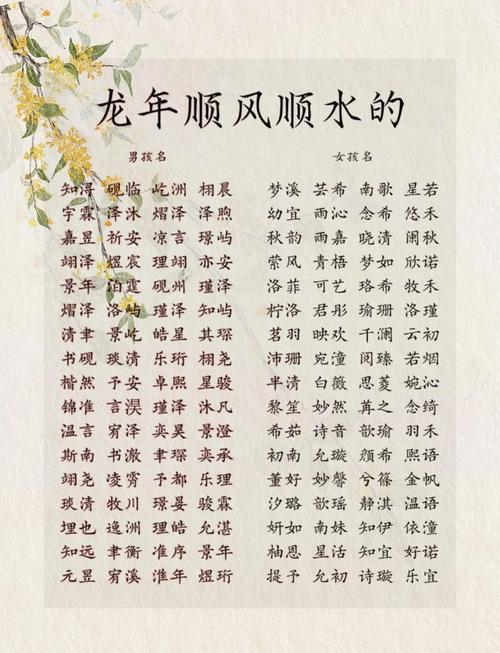 龙年顺风顺水的
男孩名 女孩名
知浔 砚临 屹洲 栩晨 梦溪 芸希 南歌 星若
宇霖 泽沐 熠泽 泽煦 幼宜 雨沁 念希 悠禾
嘉昱 祈安 凉言 璟屿 秋韵 雨嘉 晓清 阑秋
翊泽 煜宸 理翊 亦安 萦风 青梧 梦如 欣诺
景年 泊霆 砚州 瑾泽 洛菲 可艺 珞希 牧禾
熠泽 洛屿 瑾泽 知屿 柠洛 君彤 瑜珊 洛瑾
清聿 景屹 皓星 其琛 茗羽 映欢 千澜 云初
书砚 琰清 乐珩 栩尧 沛珊 宛潼 阅臻 若烟
楷然 予安 卓熙 星骏 半清 白薇 思菱 婉沁
锦准 言淏 瑾泽 沐凡 黎笙 妙然 苒之 念绮
温言 宥泽 奕昊 景澄 希茹 诗音 歆瑜 羽禾
斯南 书澈 聿琛 奕承 初南 允璇 颜希 熙语
翊尧 凌霄 予都 乐理 董好 妙馨 兮篠 金帆
琰清 牧川 璟晏 骏霖 汐璐 歆瑶 静淇 温语
埋也 逸洲 理皓 允湛 妍如 南妹 知伊 依潼
知远 聿衡 准序 景年 柚恩 星活 知宜 好诺
元昱 宥溪 淮年 煜珩 提予 允初 诗璇 乐宜